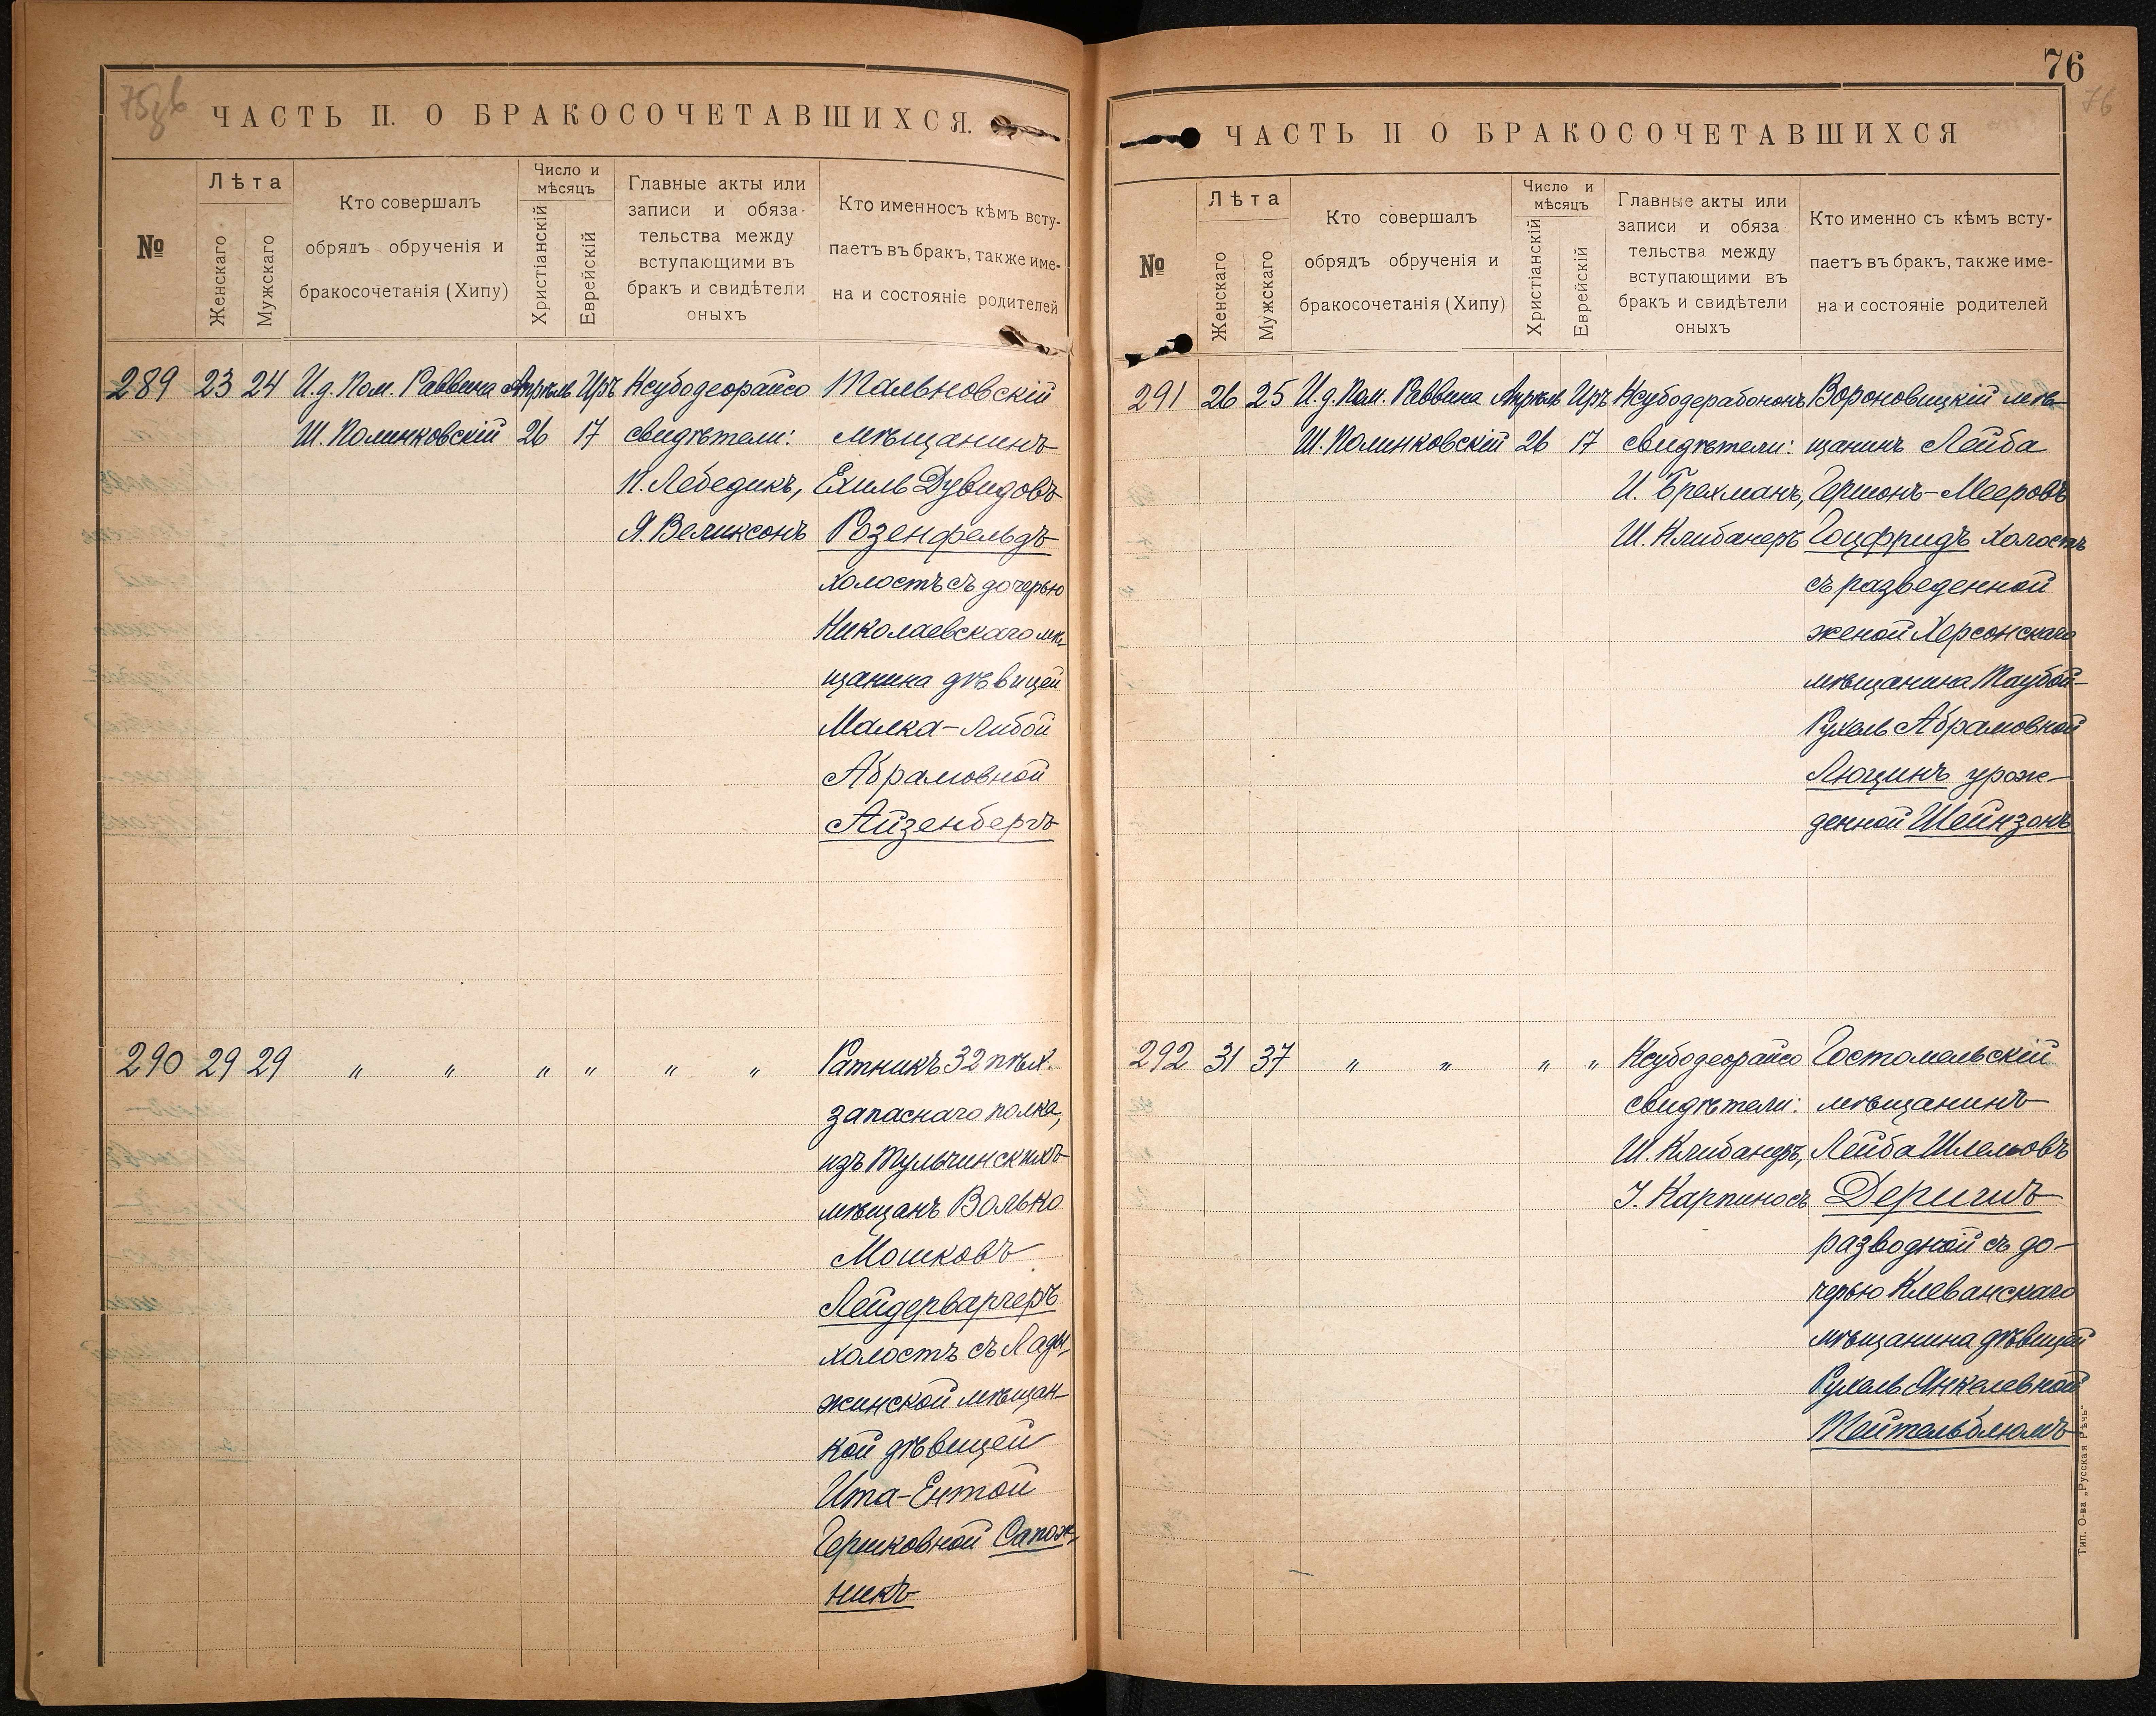 75зв
ЧАСТЬ II. О БРАКОСОЧЕТАВШИХСЯ.
№
Лѣта
Женскаго
Мужскаго
Кто совершалъ
обрядъ обрученія и
бракосочетанія (Хипу)
Число и
мѣсяцъ
Христіанскій
Еврейскій
Главные акты или
записи и обяза-
тельства между
вступающими въ
бракъ и свидѣтели
оныхъ
Кто именносъ кѣмъ всту-
паетъ въ бракъ, также име-
на и состояніе родителей
289 23 24 И.д. Пом. Раввина Апрѣль Иръ Ксубодеорайсо Тальновскій
Ш. Полинковскій 26 17 свидѣтели: мѣщанинъ
П. Лебедикъ, Ехиль Дувидовъ
Я. Великсонъ Розенфельдъ
холостъ съ дочерью
Николаевскаго мѣ-
щанина дѣвицей
Малка-Либой
Абрамовной
Айзенбергъ
290 29 29 " " " " " " Ратникъ 32 пѣх.
запаснаго полка,
изъ Тульчинскихъ
мѣщанъ Волько
Мошковъ
Лейдерваргеръ
холостъ съ Лады-
жинской мѣщан-
кой дѣвицей
Ита-Ентой
Гершковной Сапож-
никъ
76
76
ЧАСТЬ II О БРАКОСОЧЕТАВШИХСЯ
№
Лѣта
Женскаго
Мужскаго
Кто совершалъ
обрядъ обрученія и
бракосочетанія (Хипу)
Число и
мѣсяцъ
Христіанскій
Еврейскій
Главные акты или
записи и обяза
тельства между
вступающими въ
бракъ и свидѣтели
оныхъ
Кто именно съ кѣмъ всту-
паетъ въ бракъ, также име-
на и состояніе родителей
291 26 25 И.д. Пом. Раввина Апрѣль Иръ Ксубодерабононъ Вороновицкій мѣ-
Ш. Полинковскій 26 17 свидѣтели: щанинъ Лейба
И. Брехманъ, Гершонъ-Мееровъ
Ш. Клибанеръ Гоцфридъ холостъ
съ разведенной
женой Херсонскаго
мѣщанина Таубой-
Рухель Абрамовной
Люцинъ урож-
денной Шейнзонъ
292 31 37 " " " " Ксубодеорайсо Гостомельскій
свидѣтели: мѣщанинъ
Ш. Клибанеръ, Лейба Шлемовъ
І. Карпиносъ Деригъ
разводной съ до-
черью Клеванскаго
мѣщанина дѣвицей
Рухель Янкелевной
Тейтельблюмъ
Тип. О-ва „Русская Рѣчь"